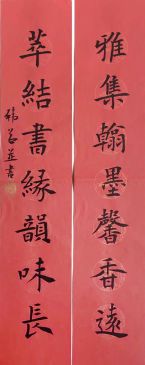 雅集翰墨馨香遠
萃結書緣韻味長